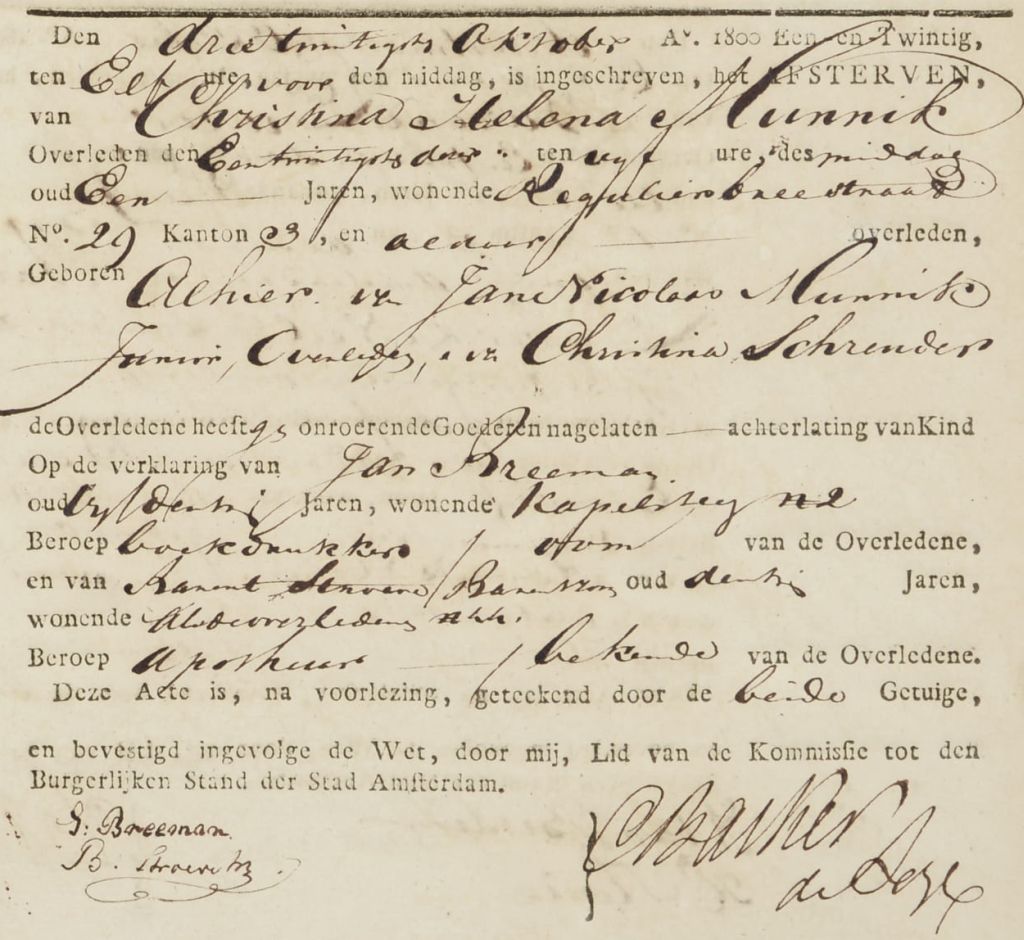 Den drieëntwintigste Oktober Aº. 1800 Een-en-Twintig,
ten Elf ure voor den middag, is ingeschreven, het AFSTERVEN,
van Christina Helena Munnik
Overleden den Eentwintigste dezer ten vyf ure, des middag
oud Een Jaren, wonende Reguliersbreestraat
Nº. 29 Kanton 3, en aldaar overleden,
Geboren Alhier. van Jan Nicolaas Munnik
Junior, Overleden, en van Christina Schreuder
de Overledene heeft gn onroerende Goederen nagelaten achterlating van Kind
Op de verklaring van Jan Breeman
oud vyfdertig Jaren, wonende Kapelsteeg n 2
Beroep boekdrukker / oom van de Overledene,
en van Barent / Barentzn oud dertig Jaren,
wonende als de overledene
Beroep apotheker / bekende van de Overledene.
Deze Acte is, na voorlezing, geteekend door de beide Getuige,
en bevestigd ingevolge de Wet, door mij, Lid van de Kommissie tot den
Burgerlijken Stand der Stad Amsterdam.
J: Breeman
B.
C Backer